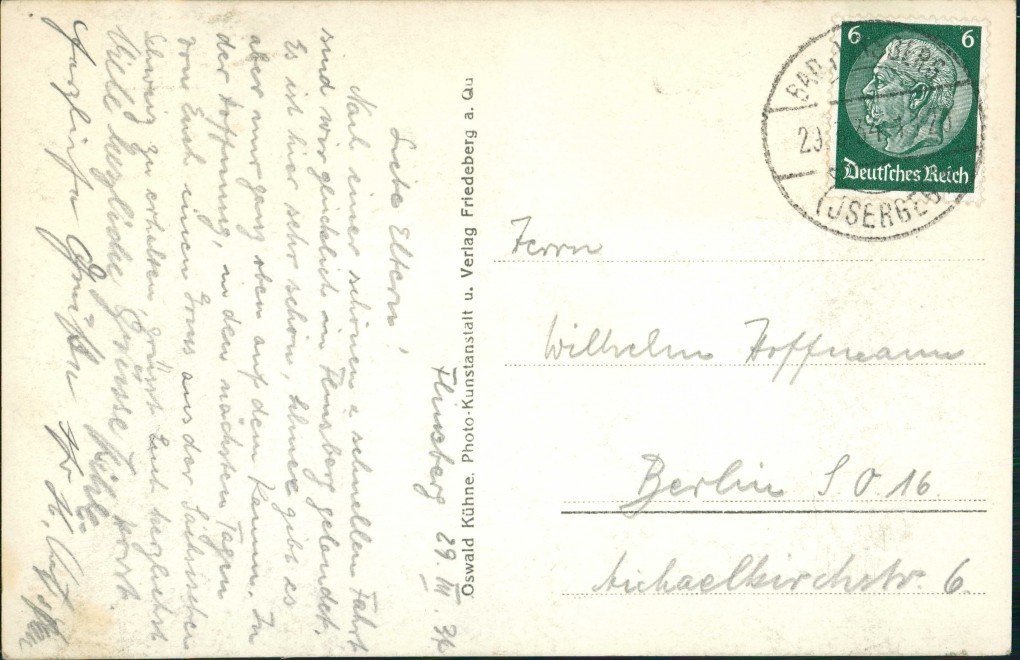 Flinsberg 29. III. 34
Liebe Eltern!
Nach einer schönen u. schnellen Fahrt
sind wir glücklich in Flinsberg gelandet.
Es ist hier sehr schön, Schnee gibt es
aber nur ganz oben auf dem Kamm. In
der Hoffnung, in den nächsten Tagen
von Euch einen Gruss aus der Sächsischen
Schweiz zu erhalten, grüsst Euch herzlichst
Horst.
Viele herzliche Grüsse Käthe
Herzliche Grüße
Oswald Kühne. Photo-Kunstanstalt u. Verlag Friedeberg a. Qu
6 6
Deutsches Reich
BAD BERG
29.
(JSERGEB
Herrn
Wilhelm Hoffmann
Berlin S O 16.
Michaelkirchstr. 6.